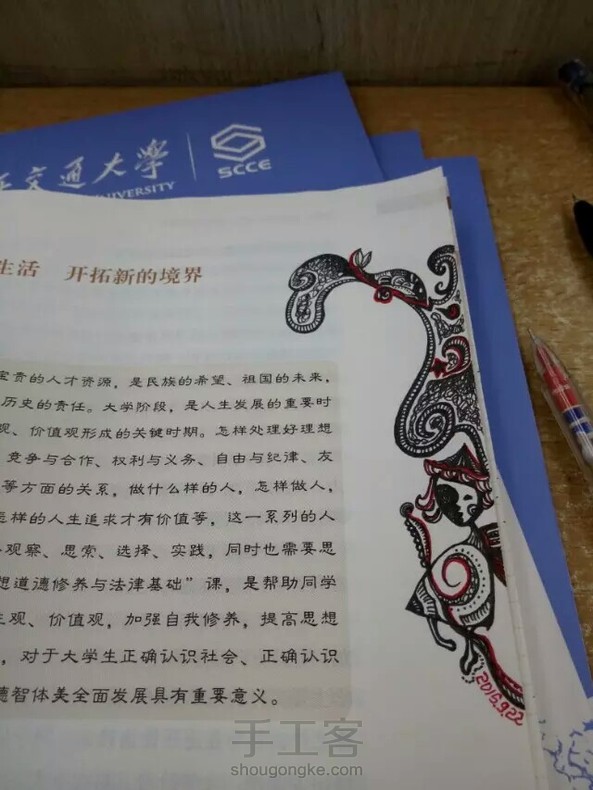 交通大學
UNIVERSITY
SCCE
生活 开拓新的境界
宝贵的人才资源，是民族的希望、祖国的未来，
历史的责任。大学阶段，是人生发展的重要时
观、价值观形成的关键时期。怎样处理好理想
、竞争与合作、权利与义务、自由与纪律、友
等方面的关系，做什么样的人，怎样做人，
怎样的人生追求才有价值等，这一系列的人
观察、思索、选择、实践，同时也需要思
想道德修养与法律基础”课，是帮助同学
观、价值观，加强自我修养，提高思想
，对于大学生正确认识社会、正确认识
德智体美全面发展具有重要意义。
2015.9.22
手工客
shougongke.com